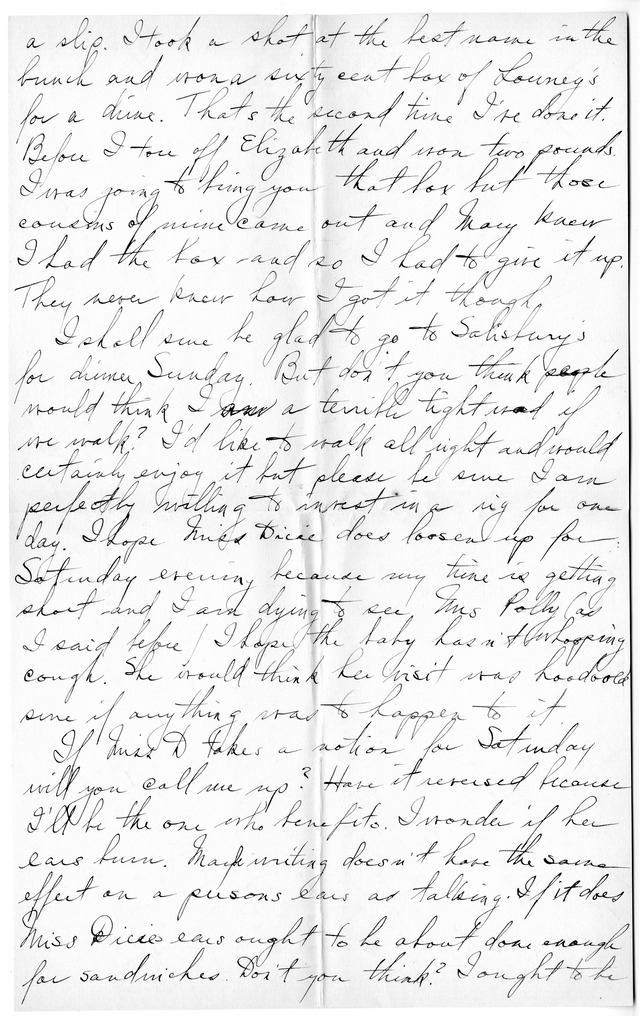 a slip. I took a shot at the best name in the
bunch and won a sixty cent box of Lowney's
for a dime. That's the second time I've done it.
Before I tore off Elizabeth and won two pounds.
I was going to bring you that box but those
cousins of mine came out and Mary knew
I had the box and so I had to give it up.
They never knew how I got it though.
I shall sure be glad to go to Salisbury's
for dinner Sunday. But don't you think people
would think I am a terrible tight wad if
we walk? I'd like to walk all right and would
certainly enjoy it but please be sure I am
perfectly willing to invest in a rig for one
day. I hope Miss Dicie does loosen up for
Saturday evening because my time is getting
short and I am dying to see Mrs Polly (as
I said before) I hope the baby hasn't whooping
cough. She would think her visit was hoodooed
sure if anything was to happen to it
If Miss D takes a notion for Saturday
will you call me up? Have it reversed because
I'll be the one who benefits. I wonder if her
ears burn. Maybe writing doesn't have the same
effect on a persons ears as talking. If it does
Miss Dicies ears ought to be about done enough
for sandwiches. Don't you think? I ought to be